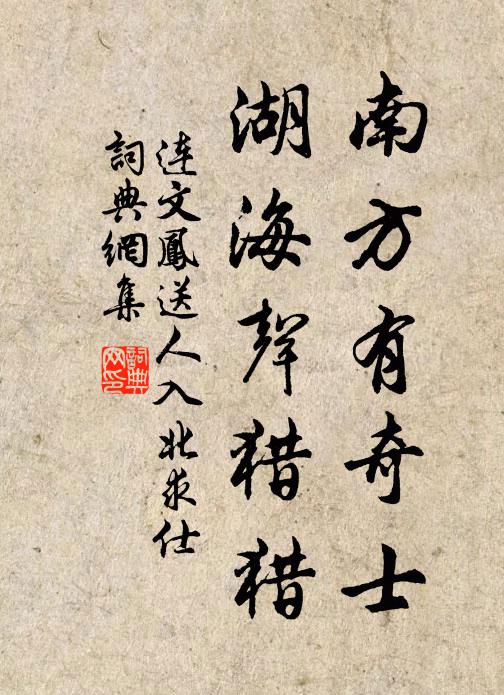 南方有奇士
湖海聲猎猎
连文鳳送人入北求仕
詞典網集
詞典网印